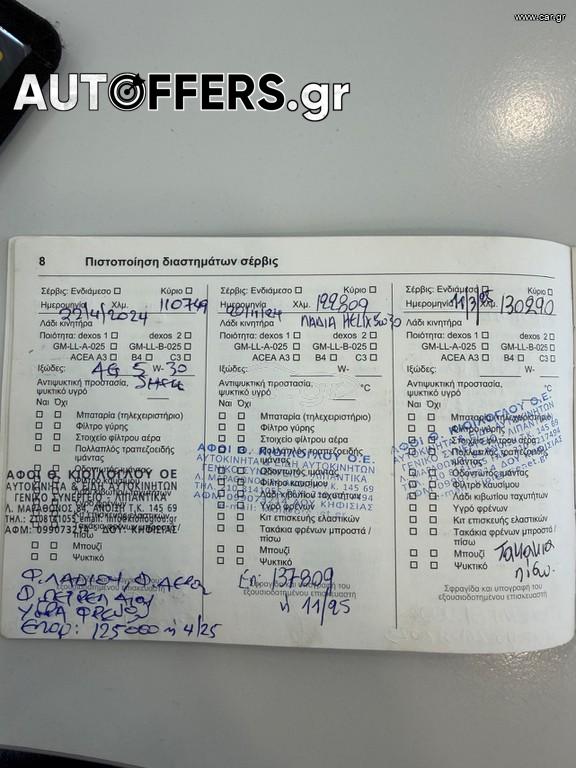 www.car.gr
AUTOFFERS.gr
8 Πιστοποίηση διαστημάτων σέρβις
Σέρβις: Ενδιάμεσο Κύριο
Ημερομηνία Χλμ. 110749
22/4/2024
Λάδι κινητήρα
Ποιότητα: dexos 1 dexos 2
GM-LL-A-025 GM-LL-B-025
ACEA A3 B4 C3
Ιξώδες: 5 W- 30
Αντιψυκτική προστασία,
ψυκτικό υγρό
Ναι Όχι
Μπαταρία (τηλεχειριστήριο)
Φίλτρο γύρης
Στοιχείο φίλτρου αέρα
Πολλαπλός τραπεζοειδής
ιμάντας
Οδοντωτός ιμάντας
Φίλτρο καυσίμου
Λάδι κιβωτίου ταχυτήτων
Υγρό φρένων
Κιτ επισκευής ελαστικών
Τακάκια φρένων μπροστά /
πίσω
Μπουζί
Ψυκτικό
ΑΦΟΙ Θ. ΚΙΟΪΛΟΓΛΟΥ ΟΕ
ΑΥΤΟΚΙΝΗΤΑ & ΕΙΔΗ ΑΥΤΟΚΙΝΗΤΩΝ
ΓΕΝΙΚΟ ΣΥΝΕΡΓΕΙΟ - ΛΙΠΑΝΤΙΚΑ
Λ. ΜΑΡΑΘΩΝΟΣ 84, ΑΝΟΙΞΗ Τ.Κ. 145 69
ΑΦΜ: 099073214 ΔΟΥ: ΚΗΦΙΣΙΑΣ
Φ. ΛΑΔΙΟΥ, Φ. ΑΕΡΑ
ΥΓΡΑ ΦΡΕΝΩΝ
ΕΠΟΜ: 125000 ή 4/25
Σέρβις: Ενδιάμεσο Κύριο
Ημερομηνία Χλμ. 122809
20/11/24
Λάδι κινητήρα HELIX 5W30
Ποιότητα: dexos 1 dexos 2
GM-LL-A-025 GM-LL-B-025
ACEA A3 B4 C3
Ιξώδες: W-
Αντιψυκτική προστασία,
ψυκτικό υγρό °C
Ναι Όχι
Μπαταρία (τηλεχειριστήριο)
Φίλτρο γύρης
Στοιχείο φίλτρου αέρα
Πολλαπλός τραπεζοειδής
ιμάντας
Οδοντωτός ιμάντας
Φίλτρο καυσίμου
Λάδι κιβωτίου ταχυτήτων
Υγρό φρένων
Κιτ επισκευής ελαστικών
Τακάκια φρένων μπροστά /
πίσω
Μπουζί
Ψυκτικό
137809
ή 11/25
Σφραγίδα και υπογραφή του
εξουσιοδοτημένου επισκευαστή
Σέρβις: Ενδιάμεσο Κύριο
Ημερομηνία 11/3/25 Χλμ. 130290
Λάδι κινητήρα
Ποιότητα: dexos 1 dexos 2
GM-LL-A-025 GM-LL-B-025
ACEA A3 B4 C3
Ιξώδες: W-
Αντιψυκτική προστασία,
ψυκτικό υγρό °C
Ναι Όχι
Μπαταρία (τηλεχειριστήριο)
Φίλτρο γύρης
Στοιχείο φίλτρου αέρα
Πολλαπλός τραπεζοειδής
ιμάντας
Οδοντωτός ιμάντας
Φίλτρο καυσίμου
Λάδι κιβωτίου ταχυτήτων
Υγρό φρένων
Κιτ επισκευής ελαστικών
Τακάκια φρένων μπροστά /
πίσω
Μπουζί
Ψυκτικό
Τακάκια
πίσω.
Σφραγίδα και υπογραφή του
εξουσιοδοτημένου επισκευαστή